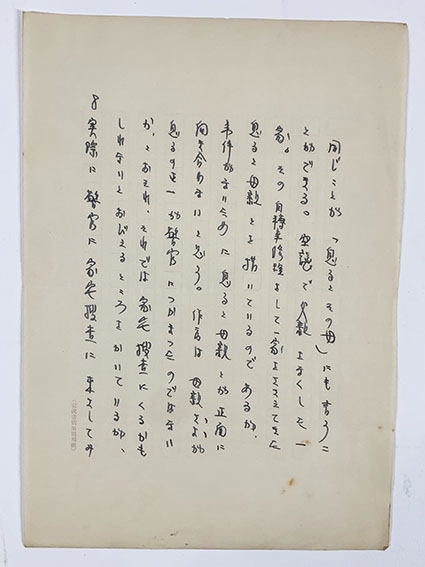 同じことが「息子とその母」にも言うこ
とができる。空襲で人数も多くした一
家。その自転車修繕をして一家を支えてきた
息子と母親とを描いているのであるが、
事件がないために息子と母親とが正面に
向き合わないと思う。作者は母親をよが
息子の正一が警官につかまったのではない
か、とおそれ、それでは家宅捜査にくるかも
しれないとおびえるところをかいているが、
実際に警官に家宅捜査に来さしてみ